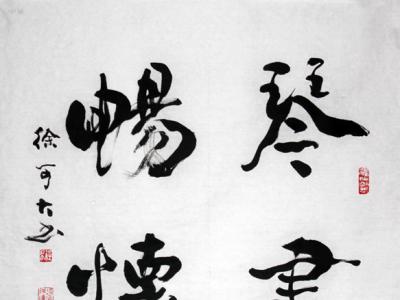 琴書
暢懷
徐可大书